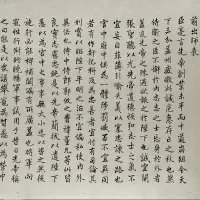 前出師表
臣亮言先帝創業未半而中道崩殂今天
下三分益州疲敝此誠危急存亡之秋也然
侍衛之臣不懈於內忠志之士忘身於外者
蓋追先帝之殊遇欲報之於陛下也誠宜開
張聖聽以光先帝遺德恢弘志士之氣不
宜妄自菲薄引喻失義以塞忠諫之路也
宮中府中俱為一體陟罰臧否不宜異同
若有作姦犯科及為忠善者宜付有司論其
刑賞以昭陛下平明之治不宜偏私使內外
異法也侍中侍郎郭攸之費禕董允等此皆
良實志慮忠純是以先帝簡拔以遺陛下
愚以為宮中之事事無大小悉以咨之然後
施行必能裨補闕漏有所廣益將軍向
寵性行淑均曉暢軍事試用於昔日先帝稱
之曰能是以眾議舉寵為督愚以為營中